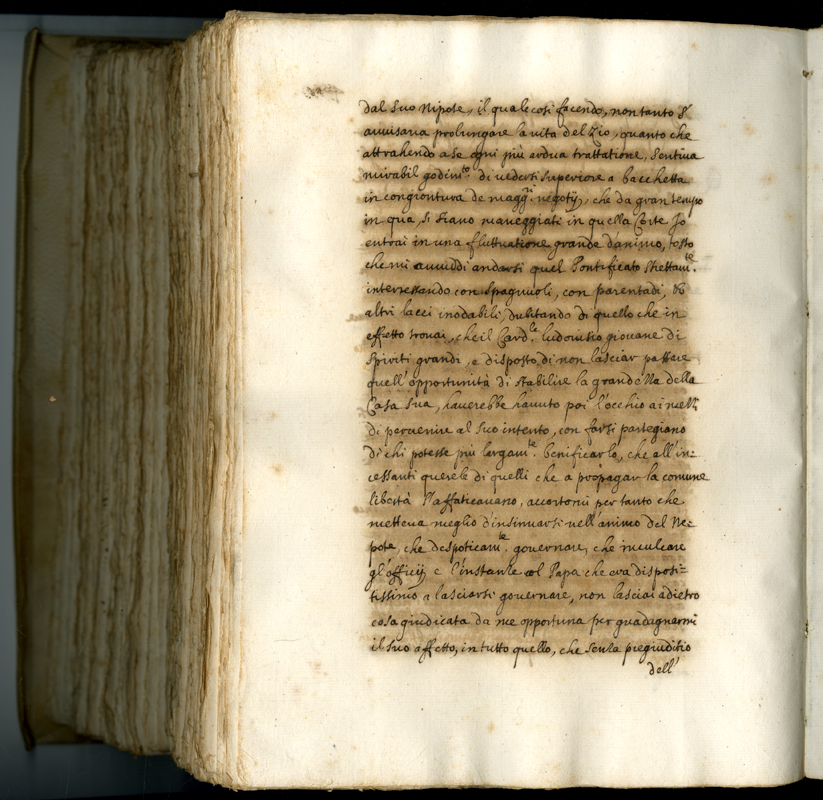 dal suo Nipote, il quale così facendo, non tanto s'
avvisava prolungare la vita del Zio, quanto che
attrahendo a se ogni più ardua trattatione, sentiva
mirabil godim.to di vedersi superiore a bacchetta
in congiontura de magg.ri negotij, che da gran tempo
in qua, si siano maneggiati in quella Corte Io
entrai in una fluttuatione grande d'animo, tosto
che mi avviddi andarsi quel Pontificato strettam.te
interessando con Spagnuoli, con parentadi, &
altri lacci inodabili, dubitando di quello che in
effetto trovai, che il Card.le ludovisio giovane di
spiriti grandi, e disposto di non lasciar passare
quell'opportunità di stabilire la grandezza della
Casa sua, haverebbe havuto poi l'occhio ai mezzi
di pervenire al suo intento, con farsi partegiano
di chi potesse più largam.te benificarlo, che all'in=
cessanti querele di quelli che a propagar la comune
libertà s'affaticavano, accortomi per tanto che
metteva meglio d'insinuarsi nell'animo del Ne=
pote, che despoticam.te governare, che inculcare
gl'officij e l'instanze al Papa che era disposi=
tissimo a lasciarsi governare, non lasciai adietro
cosa giudicata da me opportuna per guadagnarmi
il suo affetto, in tutto quello, che senza pregiuditio
dell'